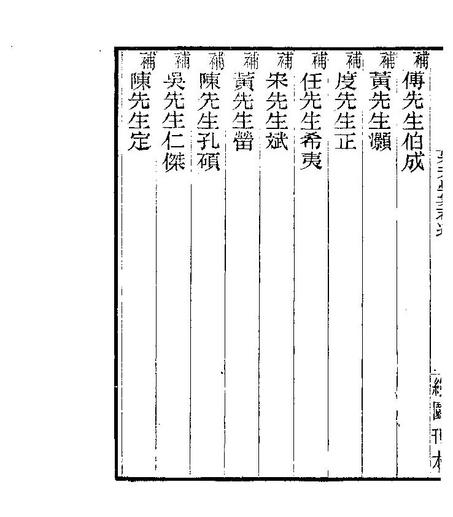 補傅先生伯成
補黃先生灝
補度先生正
補任先生希夷
補宋先生斌
補黃先生㽦
補陳先生孔碩
補吳先生仁傑
補陳先生定